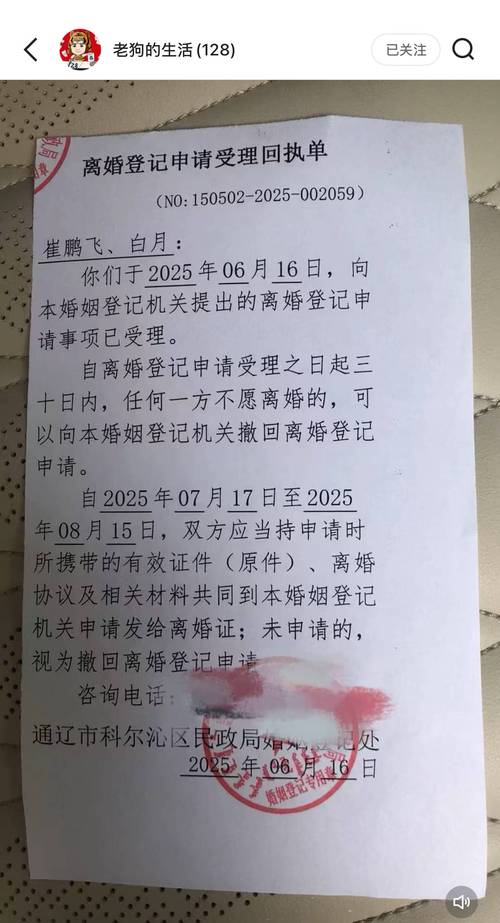 老狗的生活(128)
已关注
离婚登记申请受理回执单
(NO:150502-2025-002059)
崔鹏飞、白月：
你们于2025年06月16日，向
本婚姻登记机关提出的离婚登记申
请事项已受理。
自离婚登记申请受理之日起三
十日内，任何一方不愿离婚的，可
以向本婚姻登记机关撤回离婚登记
申请。
自2025年07月17日至2025
年08月15日，双方应当持申请时
所携带的有效证件（原件）、离婚
协议及相关材料共同到本婚姻登记
机关申请发给离婚证；未申请的，
视为撤回离婚登记申请
咨询电话：
通辽市科尔沁区民政局婚姻登记处
2025年06月16日
婚姻登记专用章